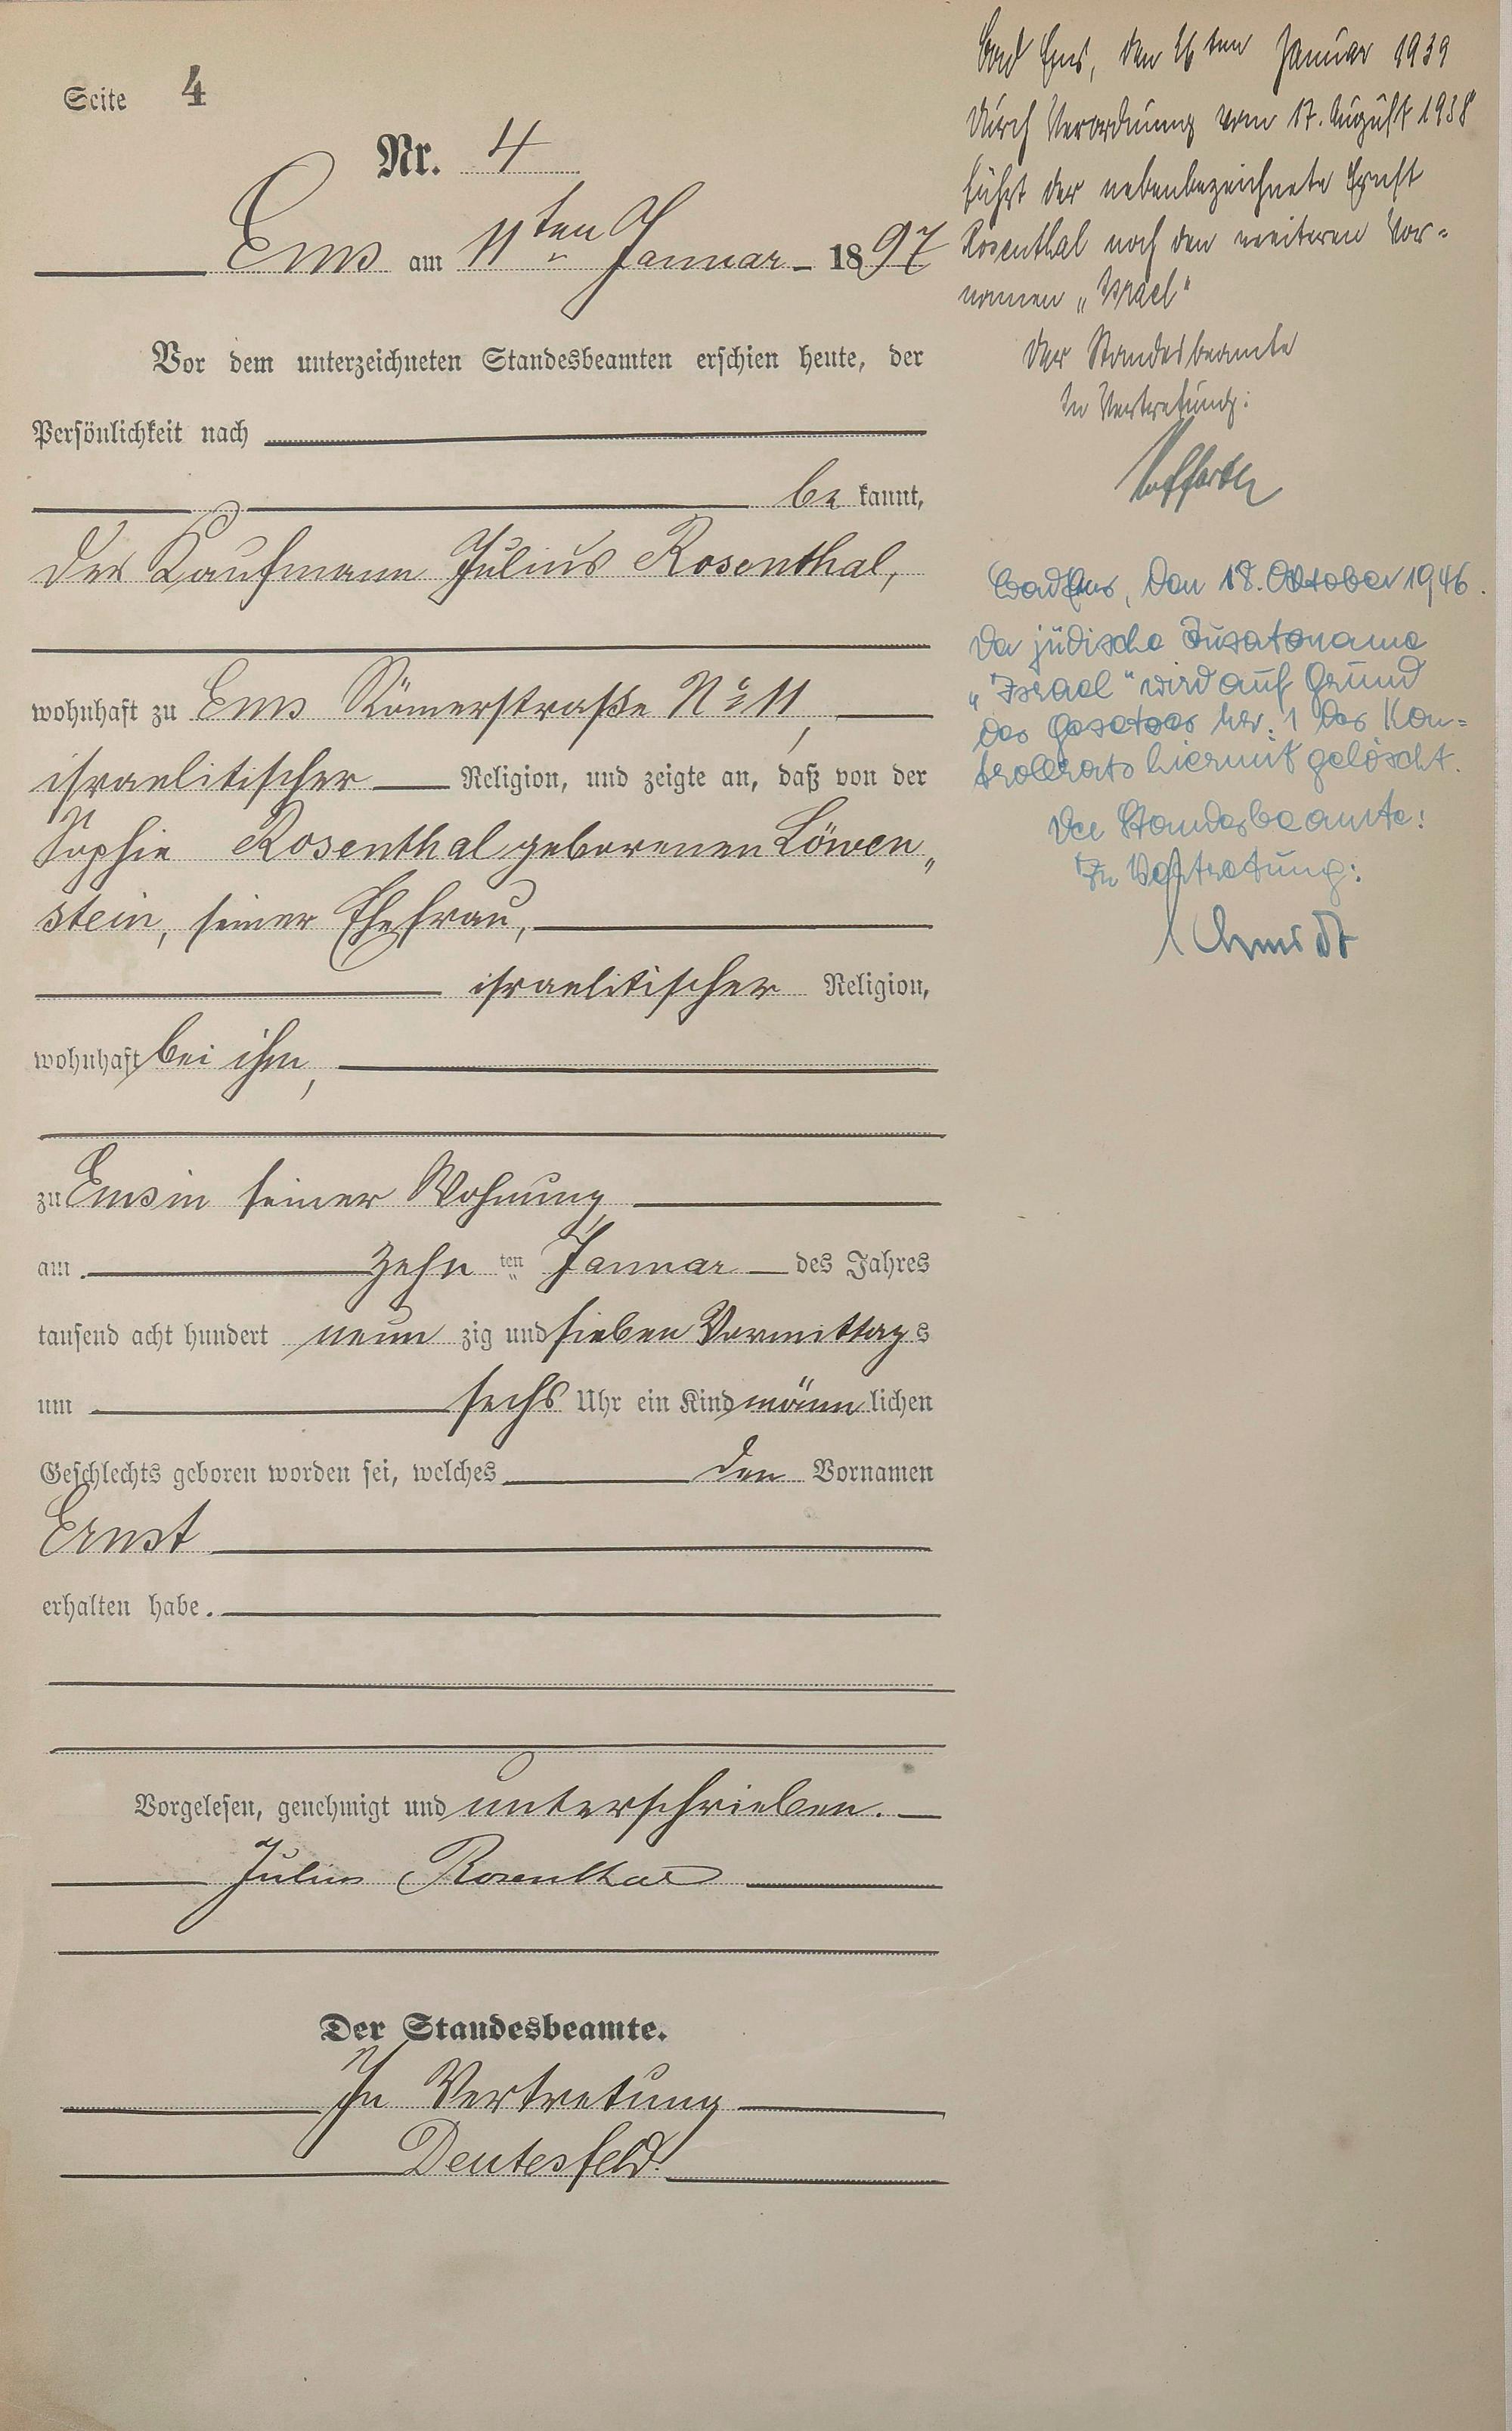 Seite 4
Nr. 4
Ems am 11ten Januar 1897
Vor dem unterzeichneten Standesbeamten erschien heute, der
Persönlichkeit nach
be kannt,
der Kaufmann Julius Rosenthal,
wohnhaft zu Ems Römerstraße No 11,
israelitischer Religion, und zeigte an, daß von der
Sophie Rosenthal geborenen Löwen„
stein, seiner Ehefrau,
israelitischer Religion,
wohnhaft bei ihm,
zu Ems in seiner Wohnung,
am zehn ten Januar des Jahres
tausend acht hundert neun zig und sieben Vormittags
um sechs Uhr ein Kind männ lichen
Geschlechts geboren worden sei, welches den Vornamen
Ernst
erhalten habe.
Vorgelesen, genehmigt und unterschrieben.
Julius Rosenthal
Der Standesbeamte.
In Vertretung
Deutesfeld.
Bad Ems, den 26ten Januar 1939
Durch Verordnung vom 17. August 1938
führt der nebenbezeichnete Ernst
Rosenthal noch den weiteren Vor=
namen „Israel"
Der Standesbeamte
In Vertretung:
Bad Ems, den 18. Oktober 1946.
Der jüdische Zusatzname
„Israel" wird auf Grund
des Gesetzes Nr. 1 des Kon=
trollrats hiermit gelöscht.
Der Standesbeamte:
In Vertretung:
Schmidt